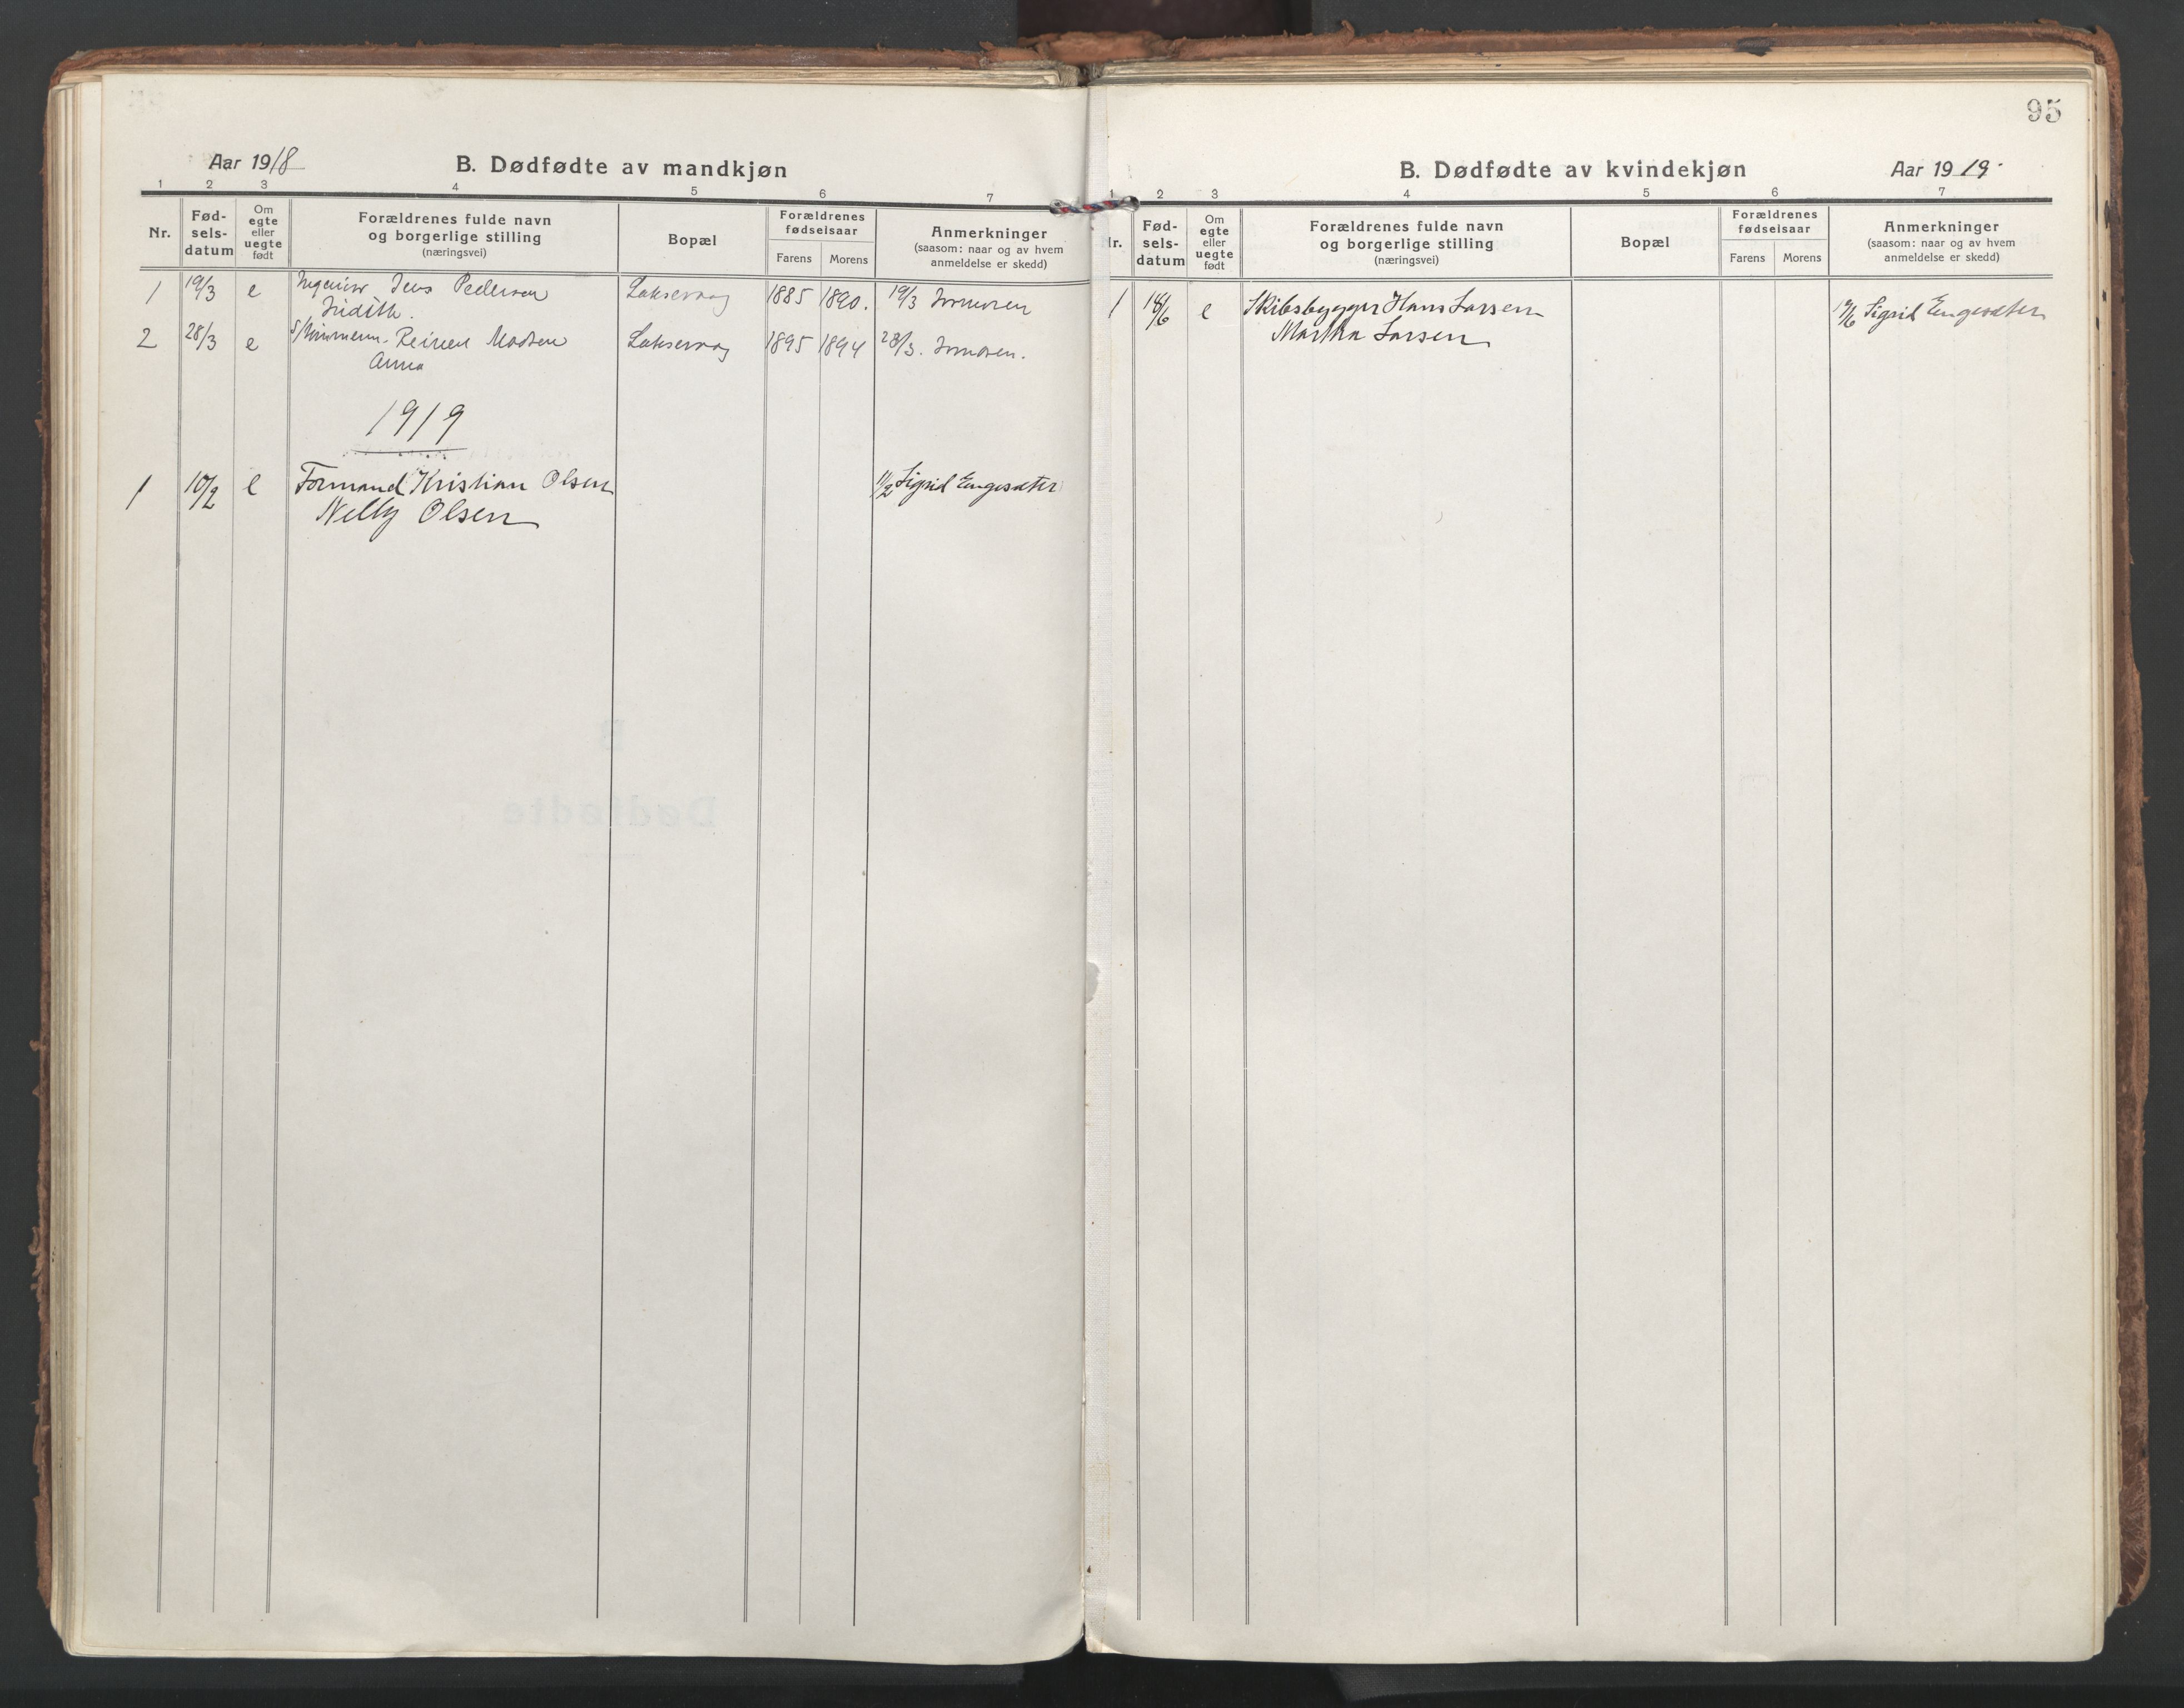 95
Aar 1918
B. Dødfødte av mandkjøn
1 2 3 4 5 6 7
Nr.
Fød-
sels-
datum
Om
egte
eller
uegte
født
Forældrenes fulde navn
og borgerlige stilling
(næringsvei)
Bopæl
Forældrenes
fødselsaar
Farens Morens
Anmerkninger
(saasom: naar og av hvem
anmeldelse er skedd)
1 19/3 e Ingeniør Jens Pedersen Laksevaag 1885 1890. 19/3
Judith.
2 28/3 e Reinert Madsen Laksevaag 1895 1894 28/3.
Anna
1919
1 10/2 e Formand Kristian Olsen 11/2 Sigrid Engesæter
Nelly Olsen
B. Dødfødte av kvindekjøn
Aar 1919.
1 2 3 4 5 6 7
Nr.
Fød-
sels-
datum
Om
egte
eller
uegte
født
Forældrenes fulde navn
og borgerlige stilling
(næringsvei)
Bopæl
Forældrenes
fødselsaar
Farens Morens
Anmerkninger
(saasom: naar og av hvem
anmeldelse er skedd)
1 18/6 e Skibsbygger Hans Larsen Sigrid Engesæter
Martha Larsen